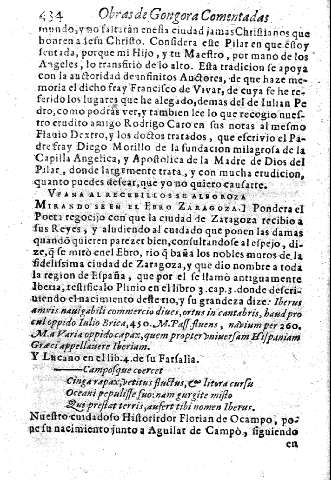 434 Obras de Gongora Comentadas
mundo, y no faltarán en esta ciudad jamas Christianos que
honren a Iesu Christo. Considera este Pilar en que estoy
sentada, porque mi Hijo, y tu Maestro, por mano de los
Angeles, lo transfiriò de lo alto. Esta tradicion se apoya
con la autoridad de infinitos Auctores, de que haze me-
moria el dicho fray Francisco de Vivar, de cuya fe he re-
ferido los lugares que he alegado, demas del de Iulian Pe-
dro, como podràs ver, y tambien lee lo que recogio nues-
tro erudito amigo Rodrigo Caro en sus notas al mesmo
Flauio Dextro, y los doctos tratados, que escrivio el Pa-
dre fray Diego Morillo de la fundacion milagrosa de la
Capilla Angelica, y Apostolica de la Madre de Dios del
Pilar, donde largamente trata, y con mucha erudicion,
quanto puedes desear, que yo no quiero cansarte.
VFANA AL RECEBILLOS SE ALBOROZA
MIRANDOSE EN EL EBRO ZARAGOZA.] Pondera el
Poeta regocijo con que la ciudad de Zaragoza recibio a
sus Reyes, y aludiendo al cuidado que ponen las damas
quando quieren parecer bien, consultandose al espejo, di-
ze, q̃ se mirò en el Ebro, rio q̃ baña los nobles muros de la
fidelissima ciudad de Zaragoza, y que dio nombre a toda
la region de España, que por el se llamò antiguamente
Iberia, testificalo Plinio en el libro 3. cap. 3. donde descri-
uiendo el nacimiento deste rio, y su grandeza dize: Iberus
amnis nauigabili commercio diues, ortus in cantabris, haud pro
cul oppido Iulio Brica, 450. M. Pass. fluens, nauium per 260.
M. a Varia oppido capax, quem propter vniuersam Hispaniam
Græci appellauere Iberiam.
Y Lucano en el lib. 4. de su Farsalia.
Camposque coercet
Cinga rapax, vetitus fluctus, & litora cursu
Oceani pepulisse suo: nam gurgite misto
Qui prestat terris, aufert tibi nomen Iberus.
Nuestro cuidadoso Historirdor Florian de Ocampo, po-
ne su nacimiento junto a Aguilar de Campò, siguiendo
en